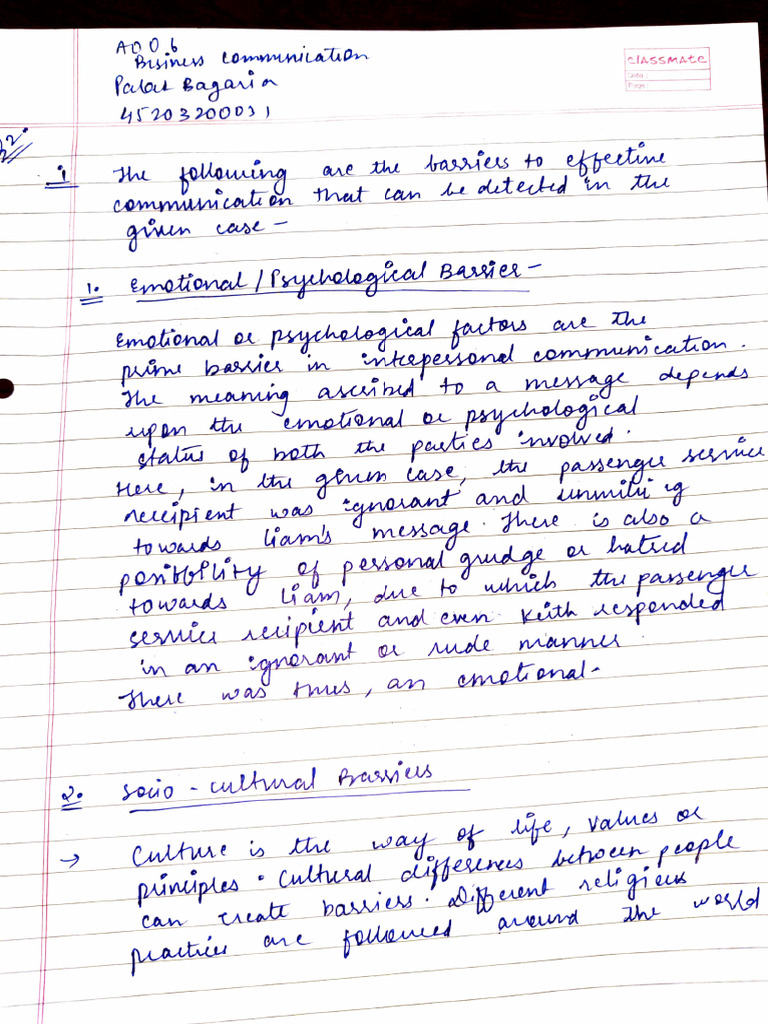 A006
Business Communication
Palak Bagaria
45203200031
classmate
Date :
Page :
32.
i The following are the barriers to effective
communication that can be detected in the
given case -
1. Emotional / Psychological Barrier -
Emotional or psychological factors are the
prime barrier in interpersonal communication.
The meaning ascribed to a message depends
upon the emotional or psychological
status of both the parties involved.
Here, in the given case, the passenger service
recipient was ignorant and
towards Liam's message. There is also a
possibility of personal grudge or hatred
towards Liam, due to which the passenger
service recipient and even Keith responded
in an ignorant or rude manner.
There was thus, an emotional.
2. Socio - Cultural Barriers
→ Culture is the way of life, values or
principles. Cultural differences between people
can create barriers. Different religious
practices are followed around the world